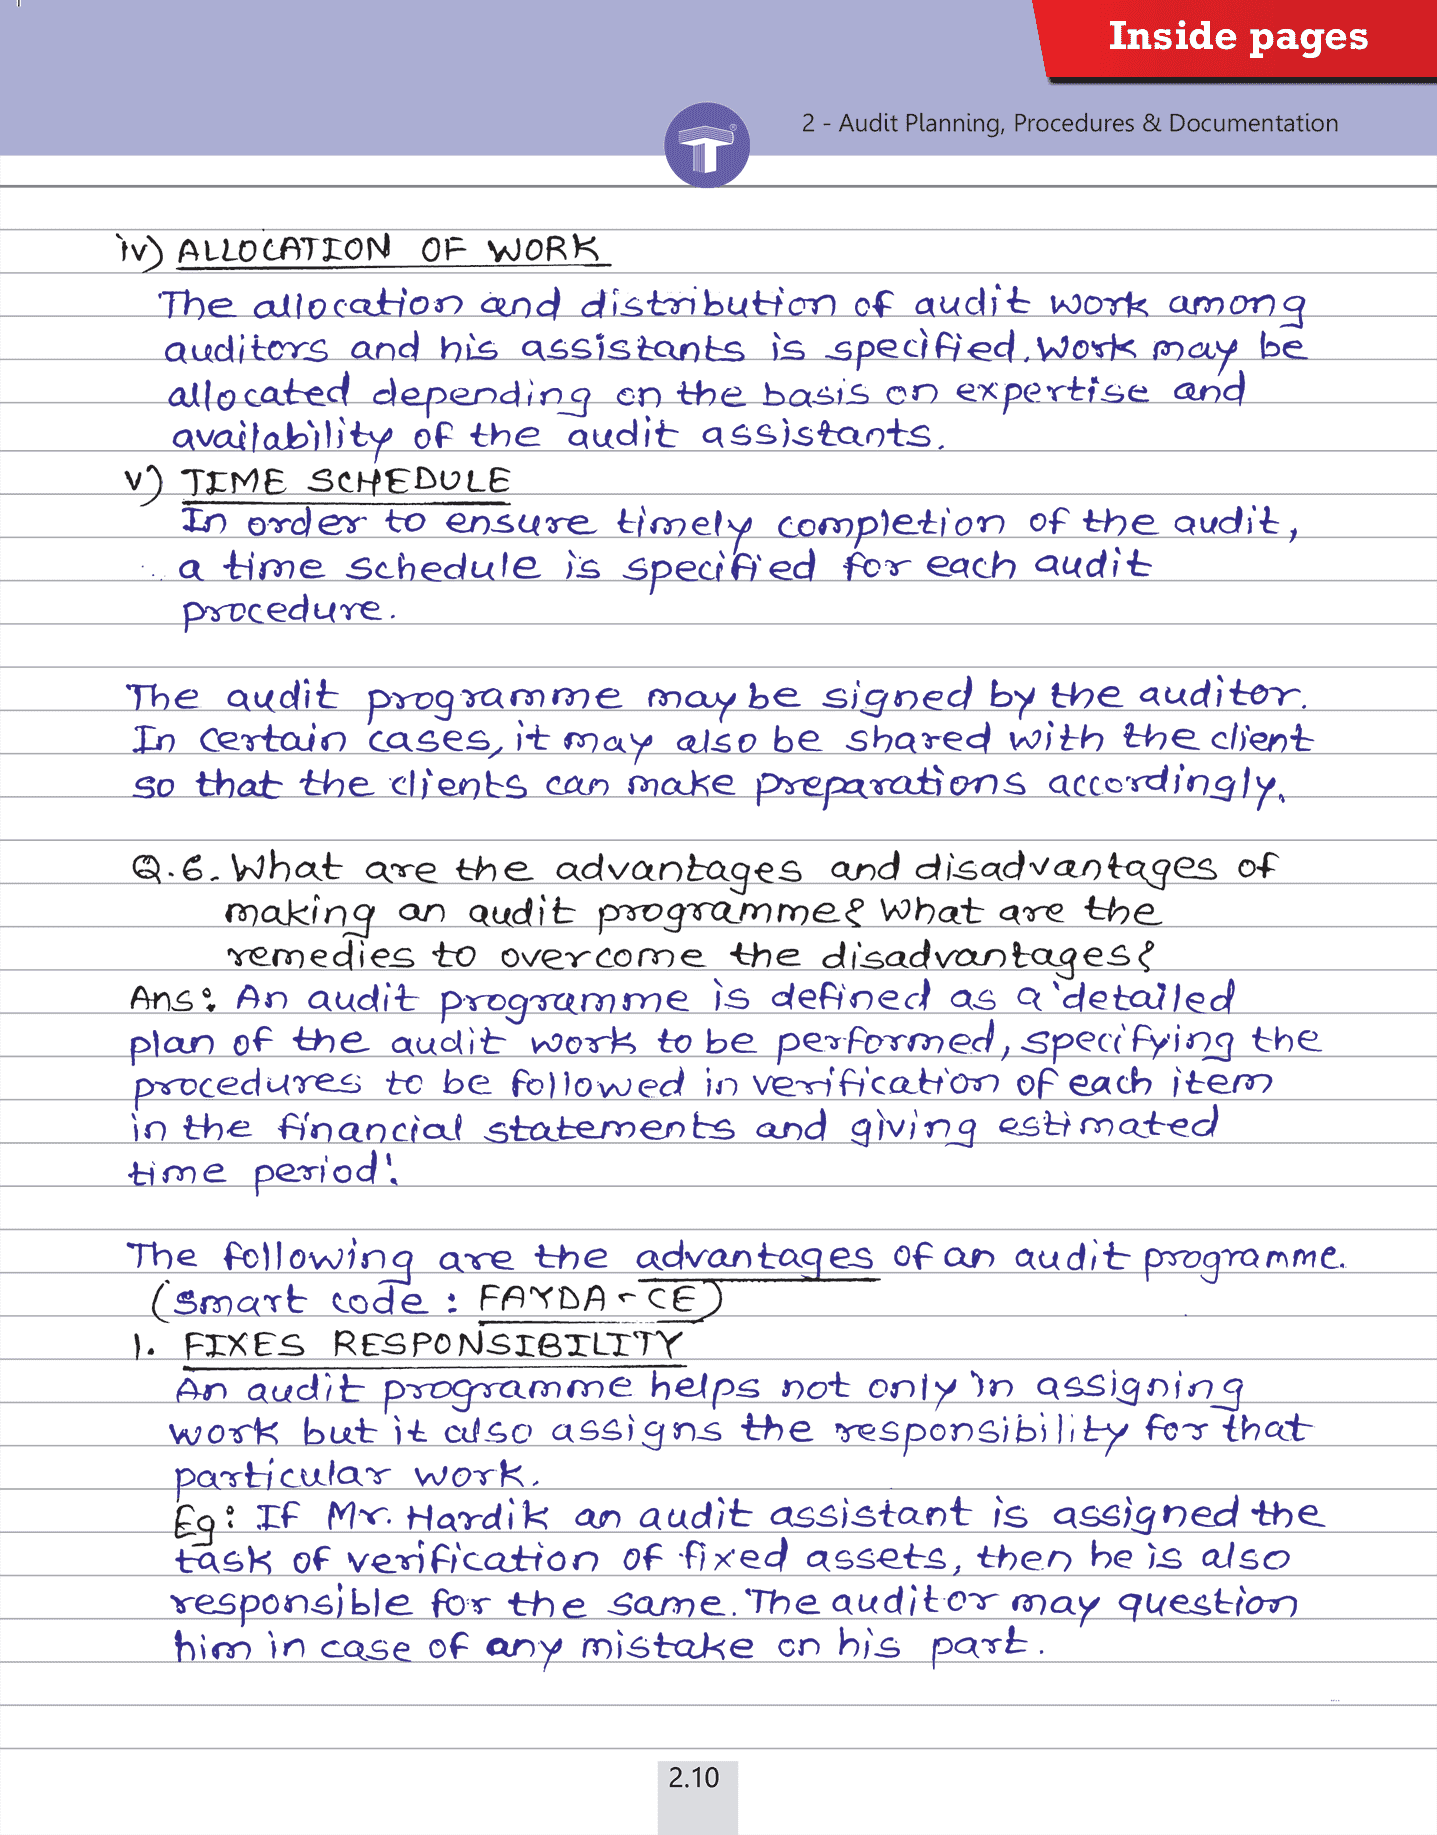 Inside pages
2 - Audit Planning, Procedures & Documentation
iv) ALLOCATION OF WORK
The allocation and distribution of audit work among
auditors and his assistants is specified. Work may be
allocated depending on the basis on expertise and
availability of the audit assistants.
v) TIME SCHEDULE
In order to ensure timely completion of the audit,
a time schedule is specified for each audit
procedure.
The audit programme may be signed by the auditor.
In certain cases, it may also be shared with the client
so that the clients can make preparations accordingly.
Q.6. What are the advantages and disadvantages of
making an audit programme? What are the
remedies to overcome the disadvantages?
Ans: An audit programme is defined as a 'detailed
plan of the audit work to be performed, specifying the
procedures to be followed in verification of each item
in the financial statements and giving estimated
time period'.
The following are the advantages of an audit programme.
(Smart code : FAYDA - CE)
1. FIXES RESPONSIBILITY
An audit programme helps not only in assigning
work but it also assigns the responsibility for that
particular work.
Eg: If Mr. Hardik an audit assistant is assigned the
task of verification of fixed assets, then he is also
responsible for the same. The auditor may question
him in case of any mistake on his part.
2.10